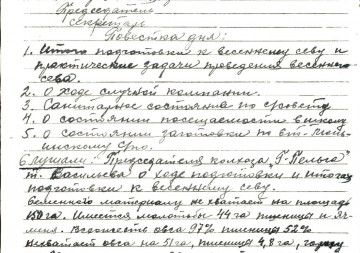 Председатель
секретарь
Повестка дня:
1. Итого подготовки к весеннему севу и
практические задачи проведения весеннего
сева.
2. О ходе случной компании.
3. Санитарное состояние по
4. О состоянии посещаемости в школу
5. О состоянии заготовки по
инскому
Слушали: Председателя колхоза "Г
т. Васильева о ходе подготовки и итогах
подготовки к весеннему севу.
Семенного материалу не хватает на площадь
150 га. Имеется 44 га пшеницы и яч-
меня. Всхожесть овса 97% пшеницы 52%
нехватает овса на 51 га, пшеницы 4,8 га, гороху